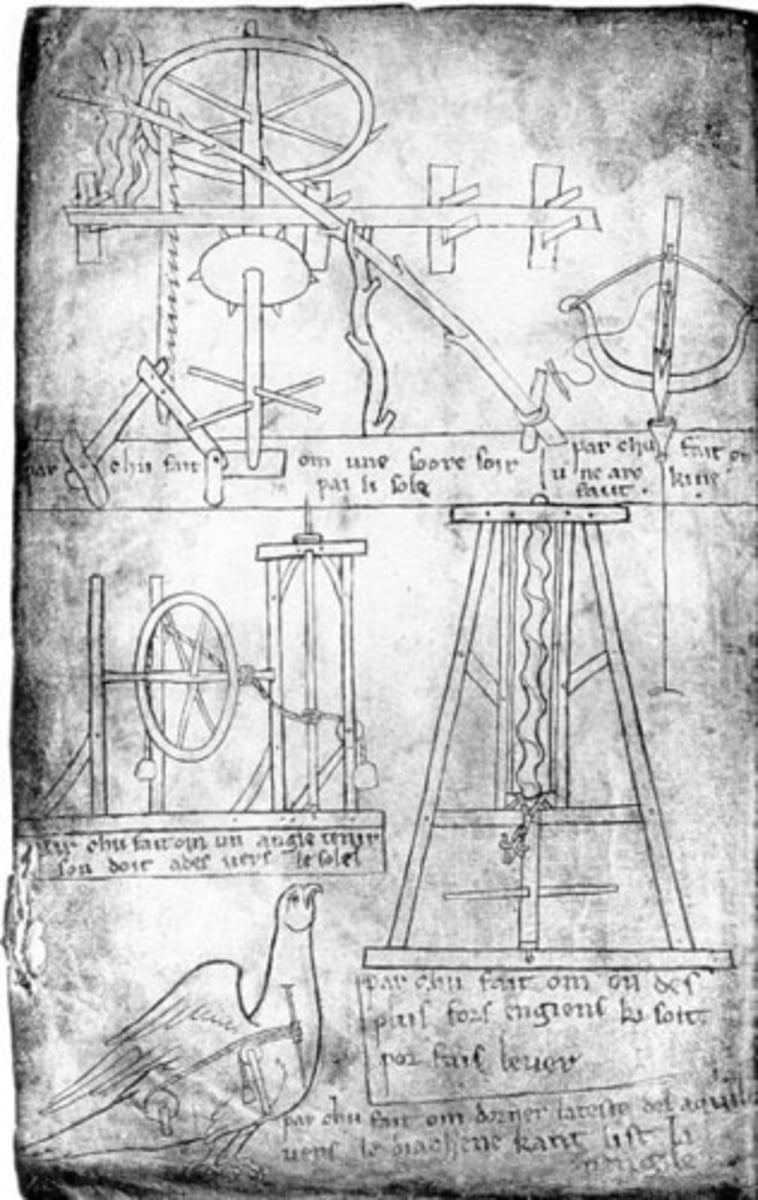 par chu fait om une soore soir
par li sole
par chu fait on
u ne arc kine
faut.
par chu fait om un angle tenir
son doit ades uers le solel
par chu fait om on des
plus fors engiens ki soit
por fais leuer
par chu fait om dorner lateste del aquile
uers le diachene kant list la